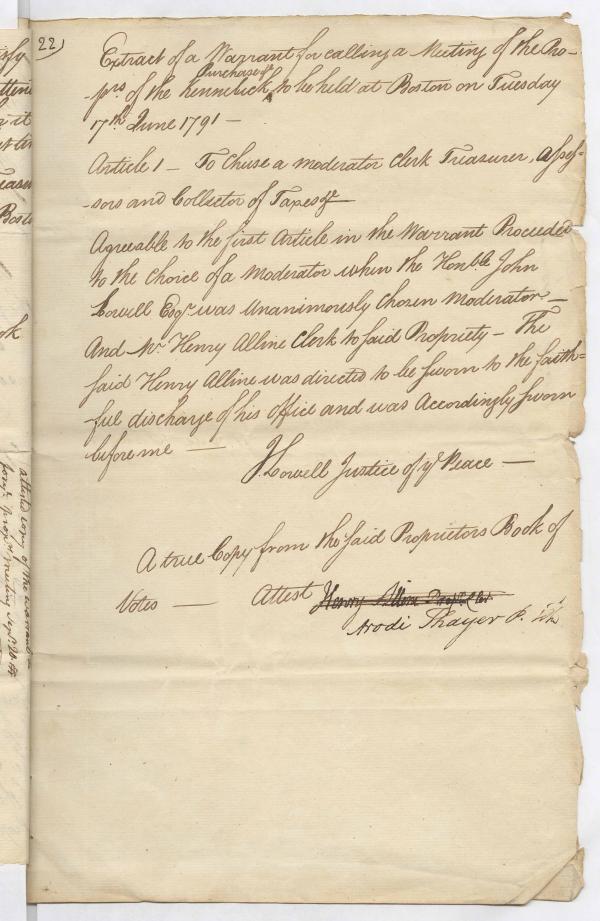 22)
Extract of a Warrant for calling a Meeting of the Pro-
Purchase &c
-prs of the Kennebeck ^ to be held at Boston on Tuesday
17th June 1791 —
Article 1 — To Chuse a moderator Clerk Treasurer, Asses-
-sors and Collector of Taxes &c
Agreeable to the first Article in the Warrant Proceeded
to the Choice of a Moderator when the Honble John
Lowell Esqr was Unanimously Chozen Moderator —
And Mr Henry Alline Clerk to said Propriety — The
said Henry Alline was directed to be sworn to the faith=
ful discharge of his office and was Accordingly Sworn
before me —
J Lowell Justice of ye Peace —
A true Copy from the said Proprietors Book of
Votes — Attest Henry Alline
Arodi Thayer P. Clk
attested copy of the warrant
meeting Sept 20